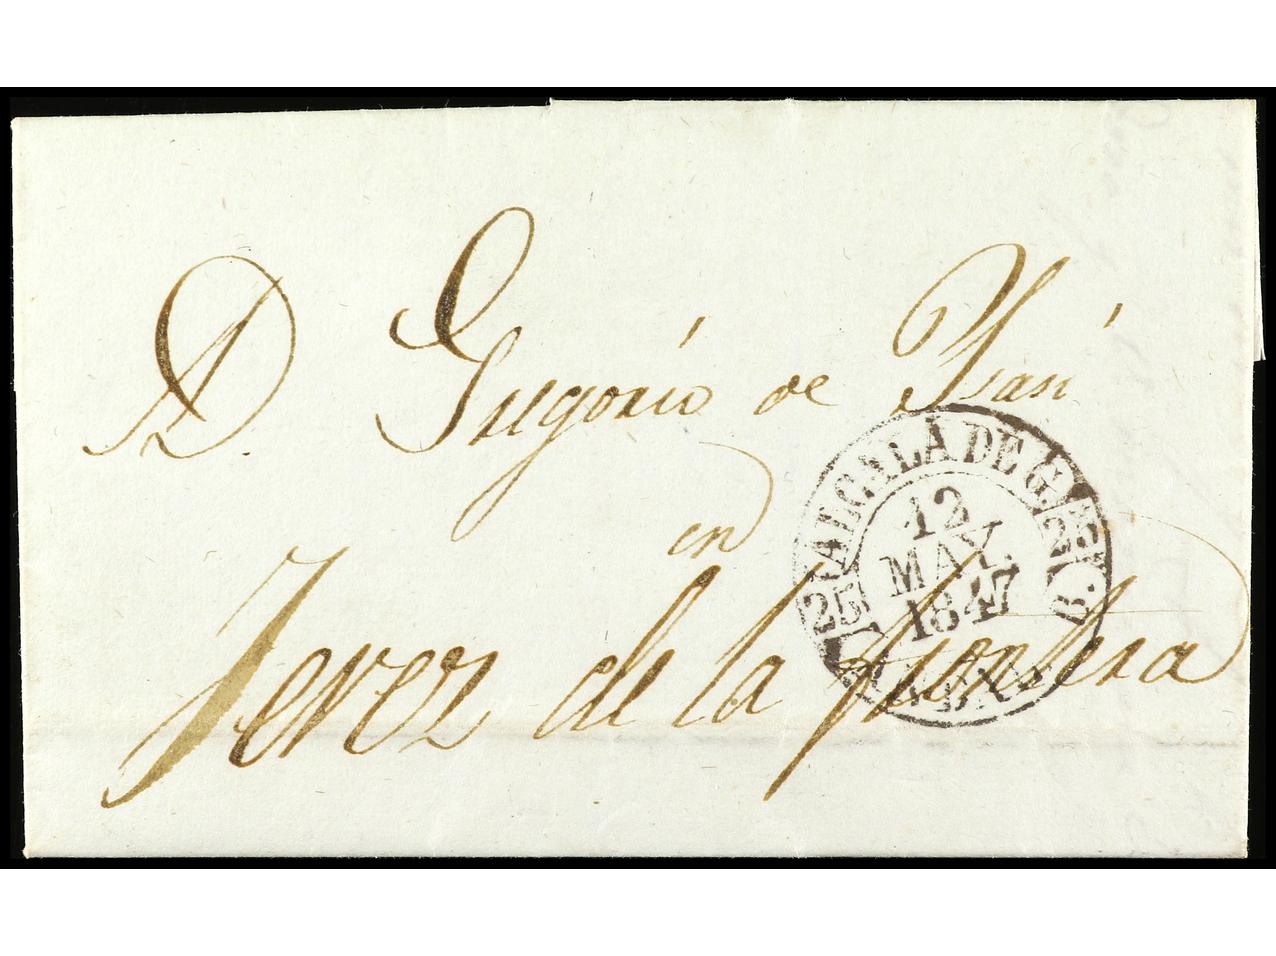 D. Gregorio de Isári
en
Jerez de la frontera
ALCALÁ DE G.
25 25
12
MAY.
1847
B.